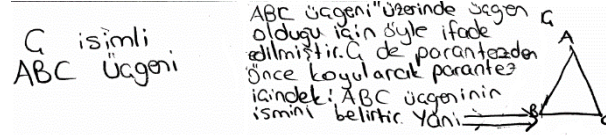 Ç isimli
ABC Üçgeni
ABC üçgeni "üzerinde üçgen
olduğu için öyle ifade
edilmiştir. Ç de parantezden
önce koyularak parantez
içindeki ABC üçgeninin
ismini belirtir. Yani
Ç
A
B
C